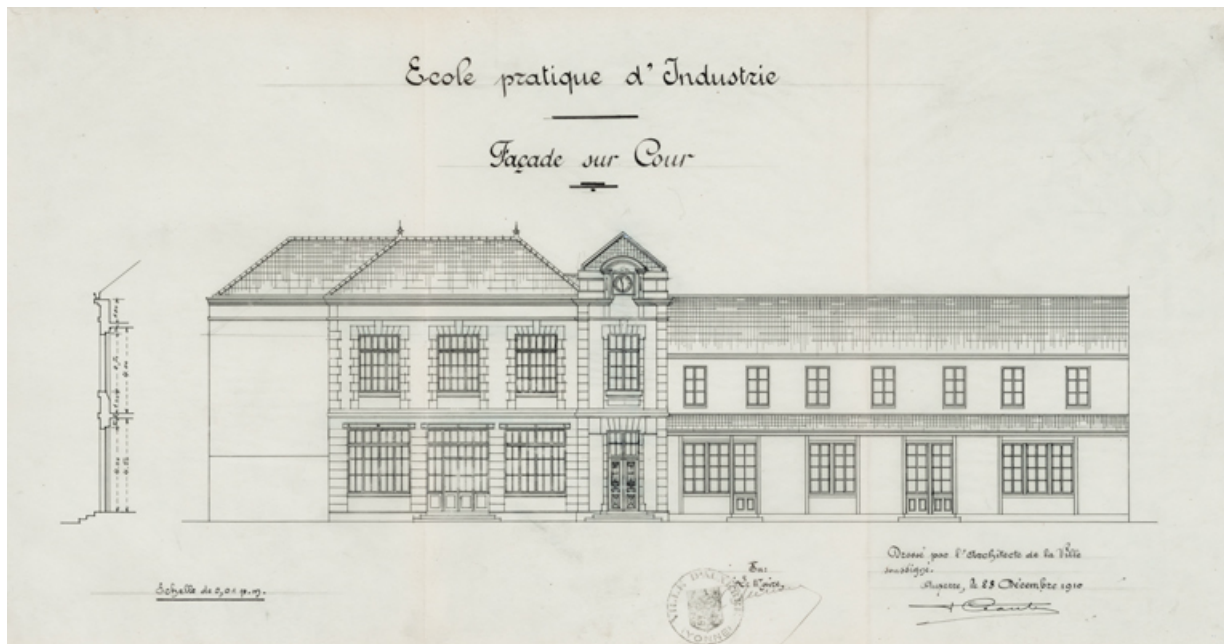 Ecole pratique d'Industrie
Façade sur Cour
Echelle de 0,01 p.m.
Vu:
Le Maire,
VILLE D'AUXERRE (YONNE)
Dressé par l'Architecte de la Ville
soussigné.
Auxerre, le 28 Décembre 1910